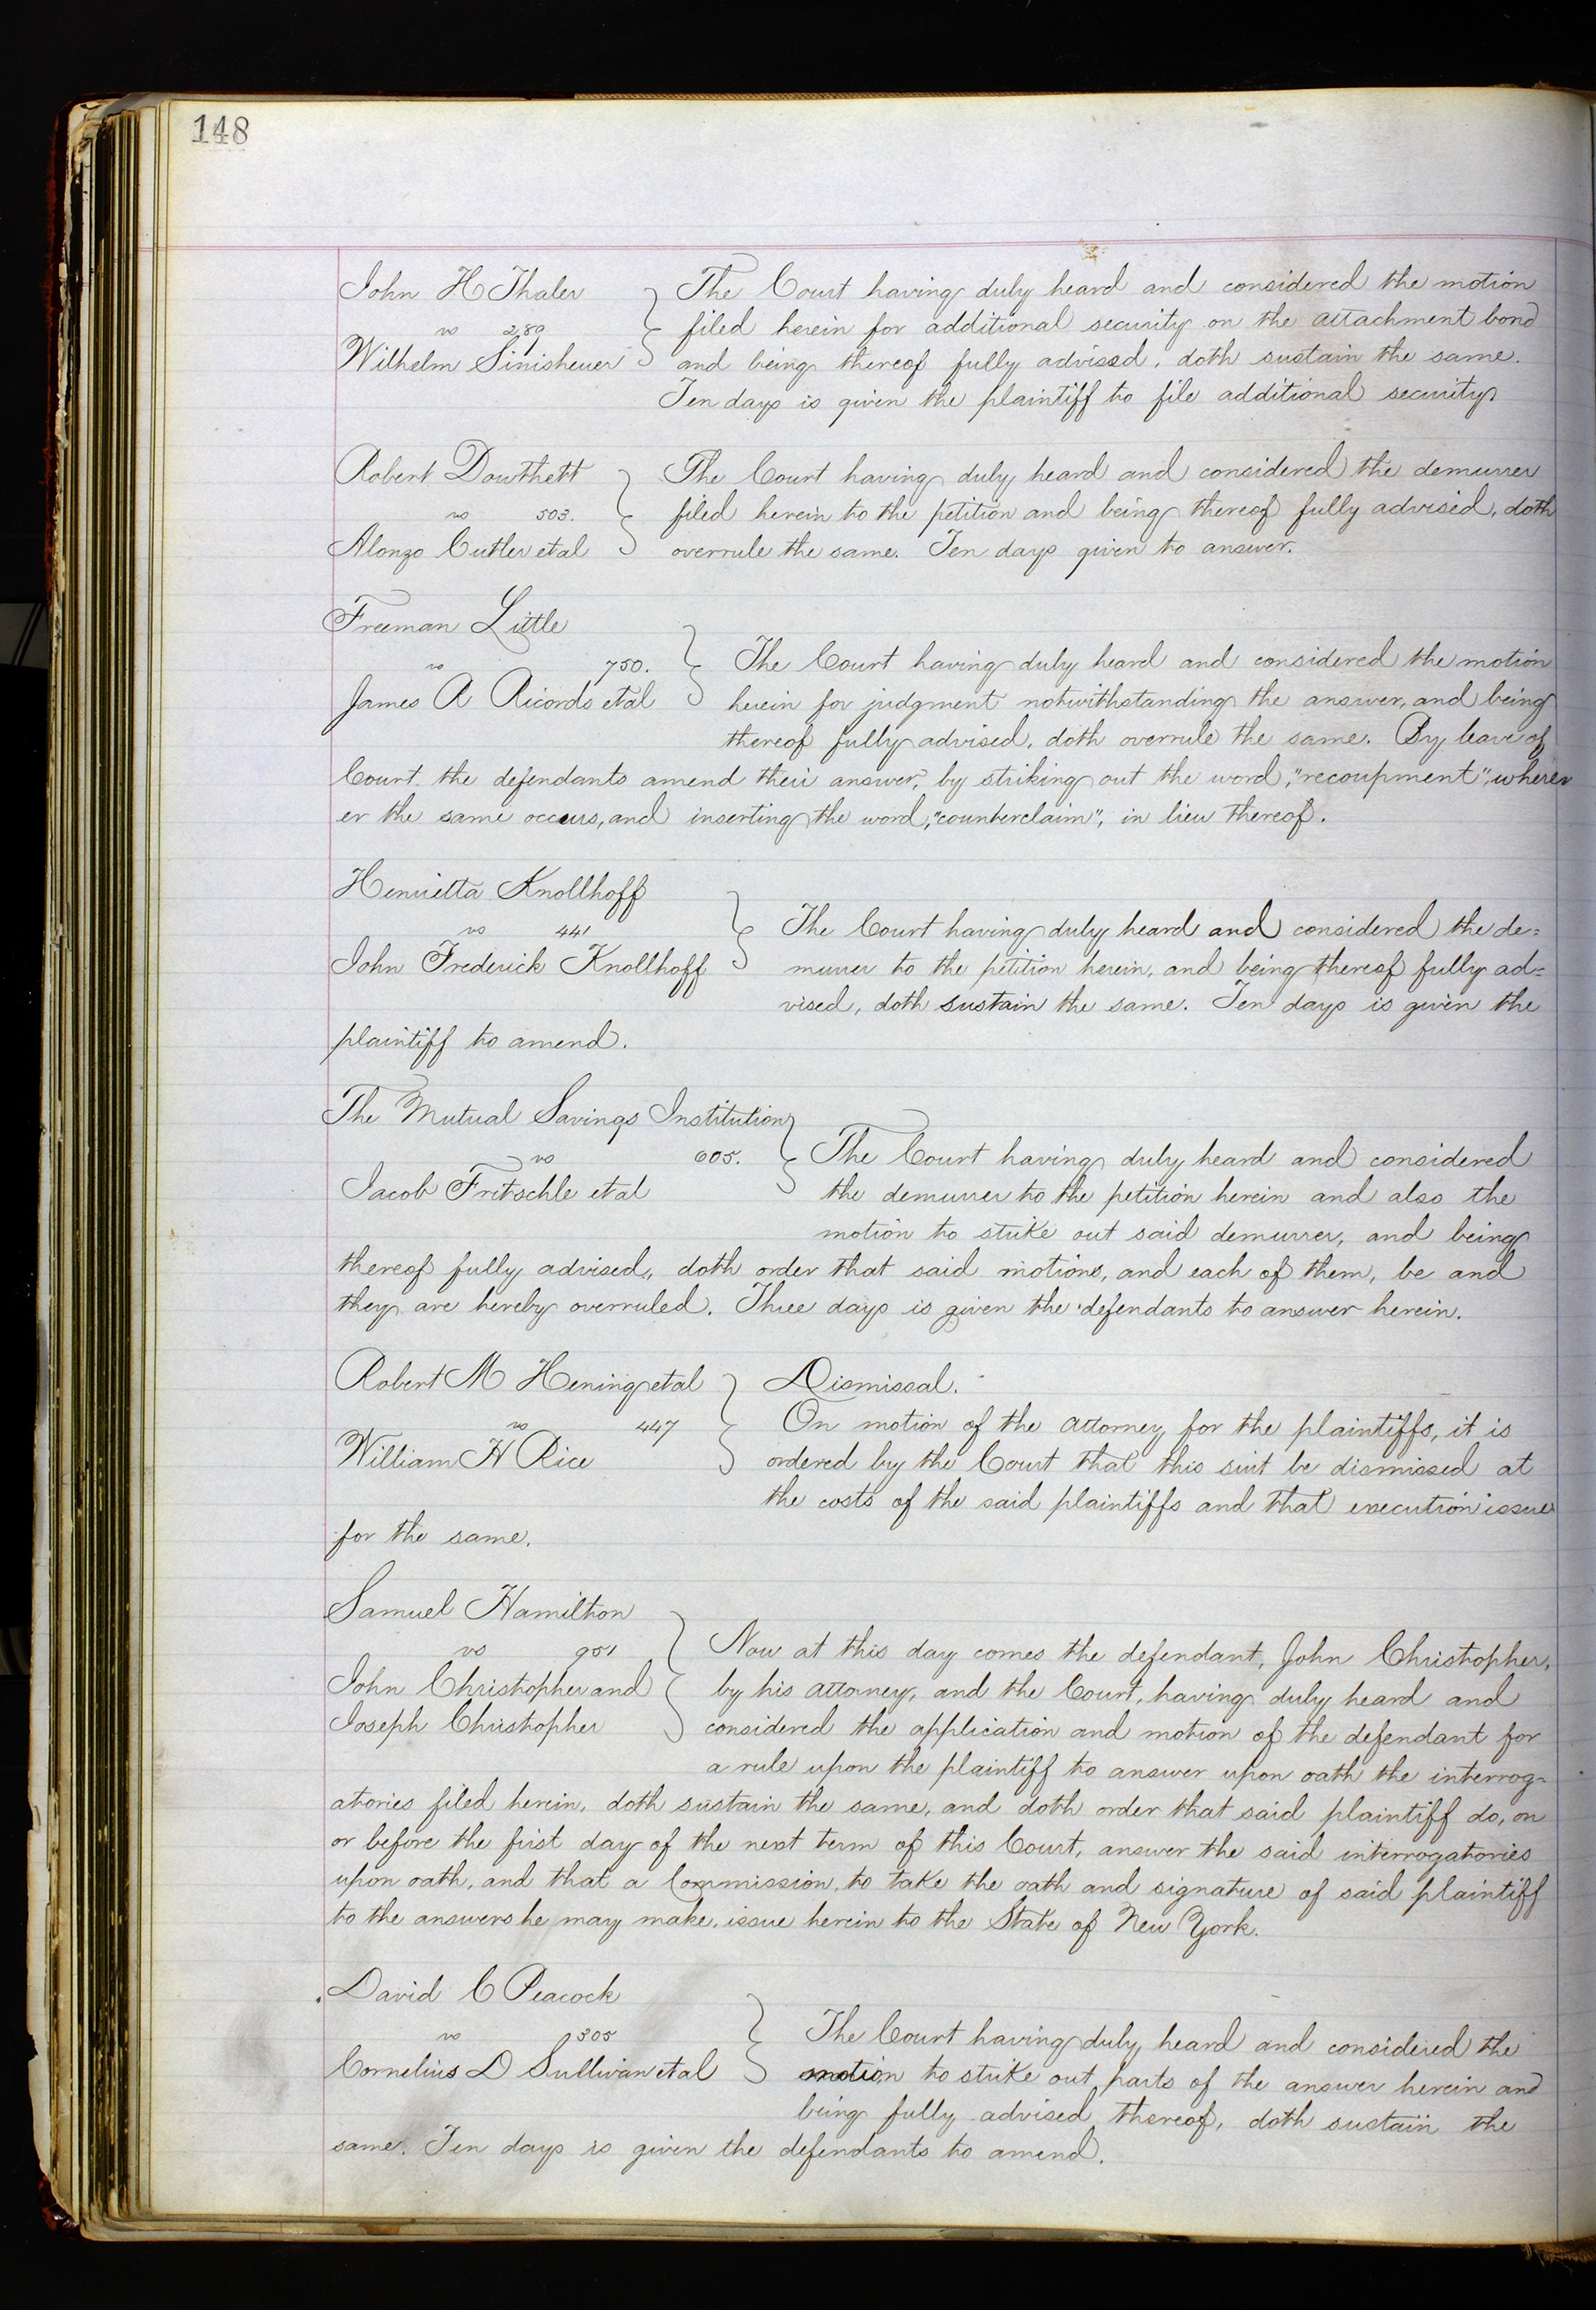 148
John H Thaler
vs 289
Wilhelm Sinisheuer
The Court having duly heard and considered the motion
filed herein for additional security on the attachment bond
and being thereof fully advised, doth sustain the same.
Ten days is given the plaintiff to file additional security
Robert Douthett
vs 503.
Alonzo Cutler et al
The Court having duly heard and considered the demurrer
filed herein to the petition and being thereof fully advised, doth
overrule the same. Ten days given to answer.
Freeman Little
vs 750.
James A Ricords et al
The Court having duly heard and considered the motion
herein for judgment notwithstanding the answer, and being
thereof fully advised, doth overrule the same. By leave of
Court, the defendants amend their answer, by striking out the word, "recoupment", wherev
er the same occurs, and inserting the word, "counterclaim", in lieu thereof.
Henrietta Knollhoff
vs 441
John Frederick Knollhoff
The Court having duly heard and considered the de=
murrer to the petition herein, and being thereof fully ad=
vised, doth sustain the same. Ten days is given the
plaintiff to amend.
The Mutual Savings Institution
vs 605.
Jacob Fritschle et al
The Court having duly heard and considered
the demurrer to the petition herein and also the
motion to strike out said demurrer, and being
thereof fully advised, doth order that said motions, and each of them, be and
they are hereby overruled. Three days is given the defendants to answer herein.
Robert M Hening et al
vs 447
William H Rice
Dismissal.
On motion of the attorney for the plaintiffs, it is
ordered by the Court that this suit be dismissed at
the costs of the said plaintiffs and that execution issue
for the same.
Samuel Hamilton
vs 951
John Christopher and
Joseph Christopher
Now at this day comes the defendant, John Christopher,
by his attorney, and the Court, having duly heard and
considered the application and motion of the defendant for
a rule upon the plaintiff to answer upon oath the interrog-
atories filed herein, doth sustain the same, and doth order that said plaintiff do, on
or before the first day of the next term of this Court, answer the said interrogatories
upon oath, and that a Commission, to take the oath and signature of said plaintiff
to the answers he may make, issue herein to the State of New York.
David C Peacock
vs 305
Cornelius D Sullivan et al
The Court having duly heard and considered the
motion to strike out parts of the answer herein and
being fully advised thereof, doth sustain the
same. Ten days is given the defendants to amend.